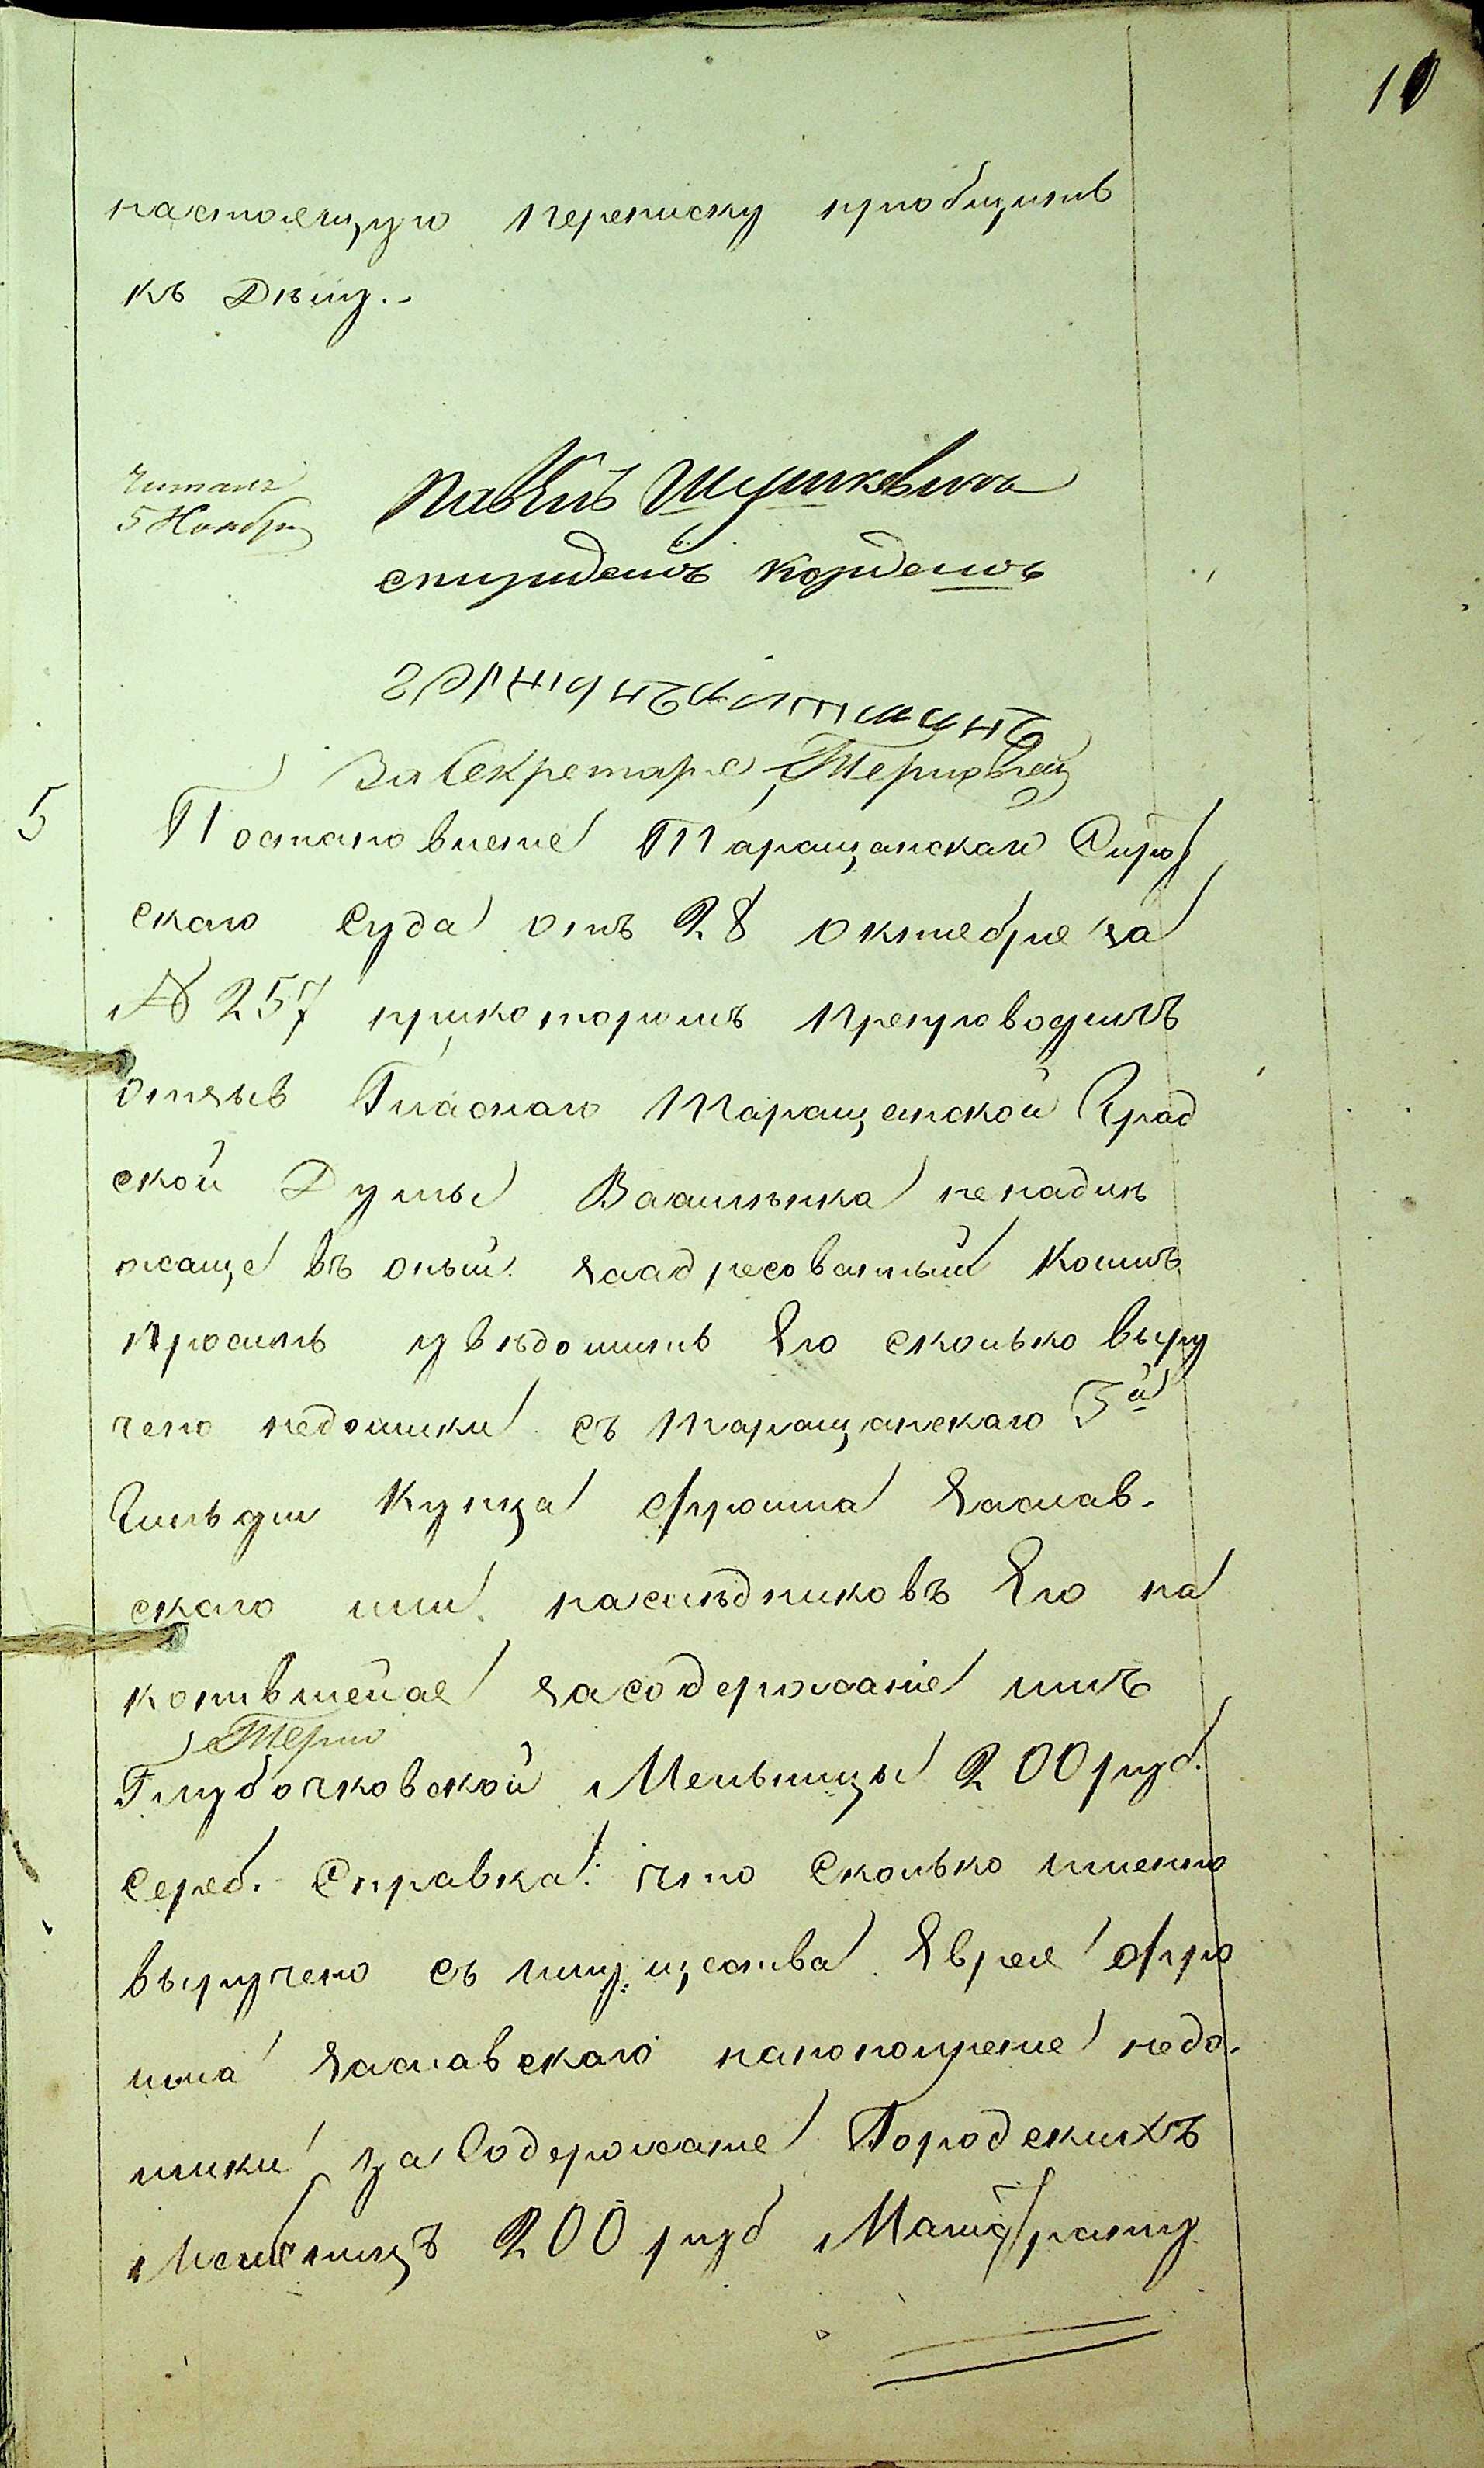 10
настоящую переписку приобщить
къ Дѣлу.-
Читалъ
5 Ноября
спиридонъ
За Секретаря Терновец
5
Постановление Таращанскаго Сирот
скаго Суда отъ 28 октября за
№ 257 прикоторомъ препроводилъ
отзыв Гласнаго Таращанской Град
ской Думы ненадле
жаще въ оный заадресованный коимъ
проситъ увѣдомить Его сколько выру
чено недоимки съ Таращанскаго 3й
Гильдии Купца Фроима Заслав-
скаго или наслѣдниковъ Его на
копившейся засодержаніе имъ
Терно
Глубочковской Мельницы 200 руб.
Сереб. Справка: что Сколько именно
выручено съ имущества Еврея Фро
има Заславскаго напополнение недо-
имки за Содержание Городскихъ
Мельницъ 200 руб Магистрату